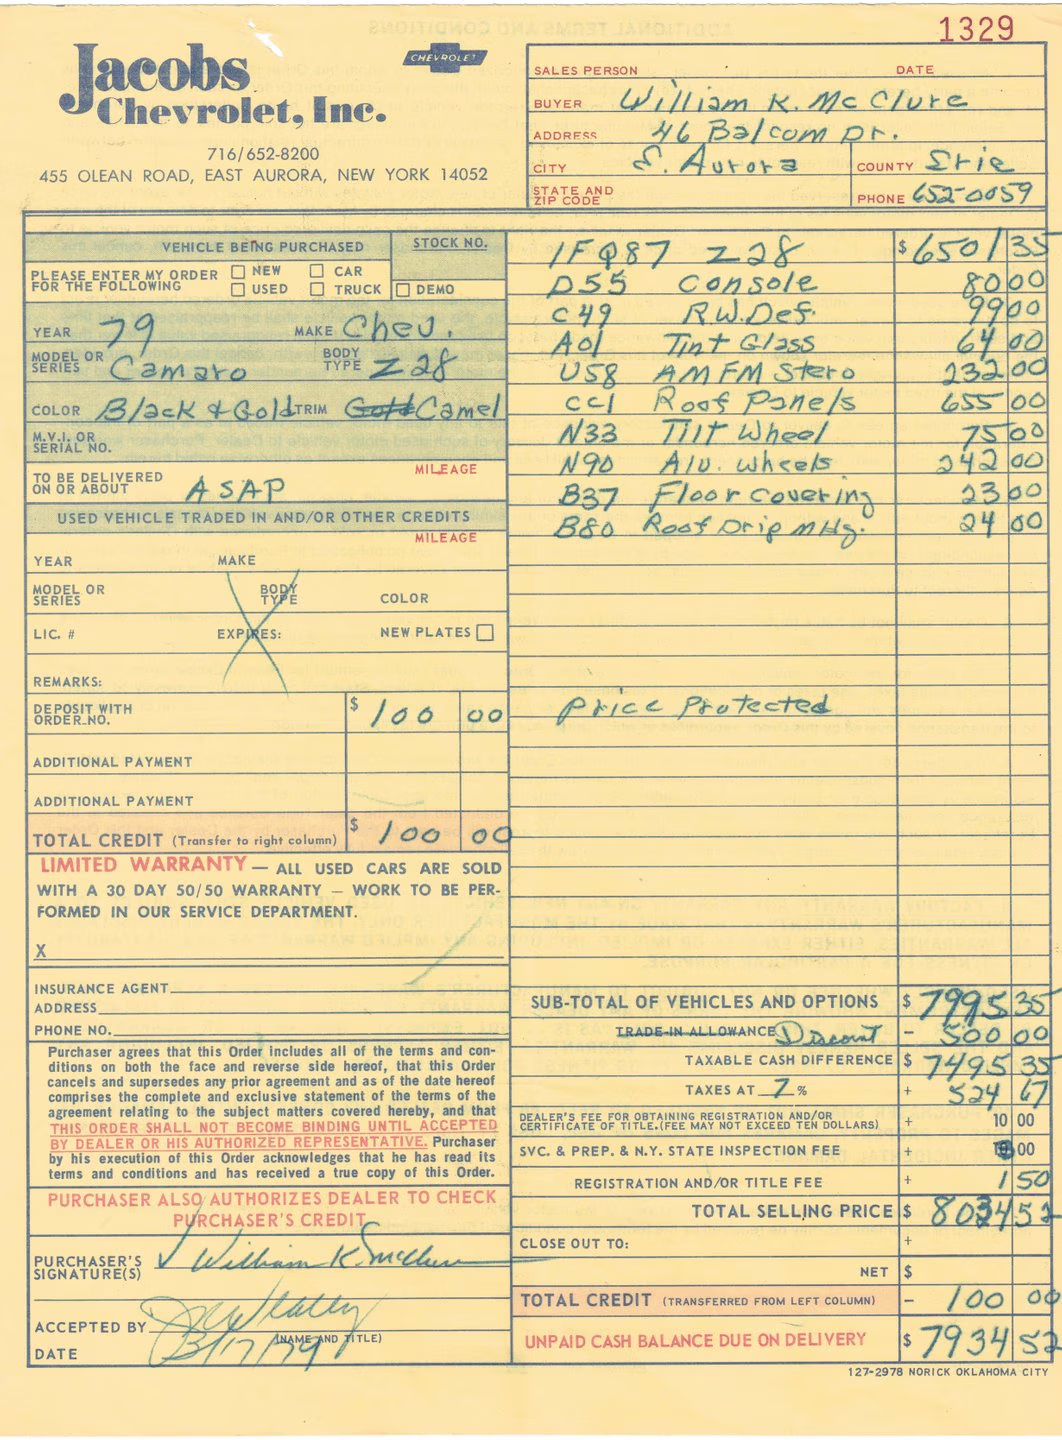 1329
Jacobs
Chevrolet, Inc.
CHEVROLET
716/652-8200
455 OLEAN ROAD, EAST AURORA, NEW YORK 14052
SALES PERSON DATE
BUYER William K. McClure
ADDRESS 46 Balcom Dr.
CITY E. Aurora COUNTY Erie
STATE AND ZIP CODE PHONE 652-0059
VEHICLE BEING PURCHASED STOCK NO.
PLEASE ENTER MY ORDER FOR THE FOLLOWING
☐ NEW ☐ CAR
☐ USED ☐ TRUCK ☐ DEMO
YEAR 79 MAKE Chev.
MODEL OR SERIES Camaro BODY TYPE Z28
COLOR Black & Gold TRIM Gold Camel
M.V.I. OR SERIAL NO.
MILEAGE
TO BE DELIVERED ON OR ABOUT ASAP
USED VEHICLE TRADED IN AND/OR OTHER CREDITS
MILEAGE
YEAR MAKE
MODEL OR SERIES BODY TYPE COLOR
LIC. # EXPIRES: NEW PLATES ☐
REMARKS:
DEPOSIT WITH ORDER NO. $ 100 00
ADDITIONAL PAYMENT
ADDITIONAL PAYMENT
TOTAL CREDIT (Transfer to right column) $ 100 00
LIMITED WARRANTY — ALL USED CARS ARE SOLD
WITH A 30 DAY 50/50 WARRANTY — WORK TO BE PER-
FORMED IN OUR SERVICE DEPARTMENT.
X
INSURANCE AGENT
ADDRESS
PHONE NO.
Purchaser agrees that this Order includes all of the terms and con-
ditions on both the face and reverse side hereof, that this Order
cancels and supersedes any prior agreement and as of the date hereof
comprises the complete and exclusive statement of the terms of the
agreement relating to the subject matters covered hereby, and that
THIS ORDER SHALL NOT BECOME BINDING UNTIL ACCEPTED
BY DEALER OR HIS AUTHORIZED REPRESENTATIVE. Purchaser
by his execution of this Order acknowledges that he has read its
terms and conditions and has received a true copy of this Order.
PURCHASER ALSO AUTHORIZES DEALER TO CHECK
PURCHASER'S CREDIT
PURCHASER'S SIGNATURE(S) William K. McClure
ACCEPTED BY
(NAME AND TITLE)
DATE 3/17/79
1FQ87 Z28 $ 6501 35
D55 Console 80 00
C49 R.W.Def. 99 00
A01 Tint Glass 64 00
U58 AM FM Stero 232 00
CC1 Roof Panels 655 00
N33 Tilt Wheel 75 00
N90 Alu. Wheels 242 00
B37 Floor covering 23 00
B80 Roof Drip Mldg. 24 00
Price Protected
SUB-TOTAL OF VEHICLES AND OPTIONS $ 7995 35
TRADE-IN ALLOWANCE Discount - 500 00
TAXABLE CASH DIFFERENCE $ 7495 35
TAXES AT 7 % + 524 67
DEALER'S FEE FOR OBTAINING REGISTRATION AND/OR
CERTIFICATE OF TITLE.(FEE MAY NOT EXCEED TEN DOLLARS) + 10 00
SVC. & PREP. & N.Y. STATE INSPECTION FEE + 00
REGISTRATION AND/OR TITLE FEE + 1 50
TOTAL SELLING PRICE $ 8034 52
CLOSE OUT TO: +
NET $
TOTAL CREDIT (TRANSFERRED FROM LEFT COLUMN) - 100 00
UNPAID CASH BALANCE DUE ON DELIVERY $ 7934 52
127-2978 NORICK OKLAHOMA CITY